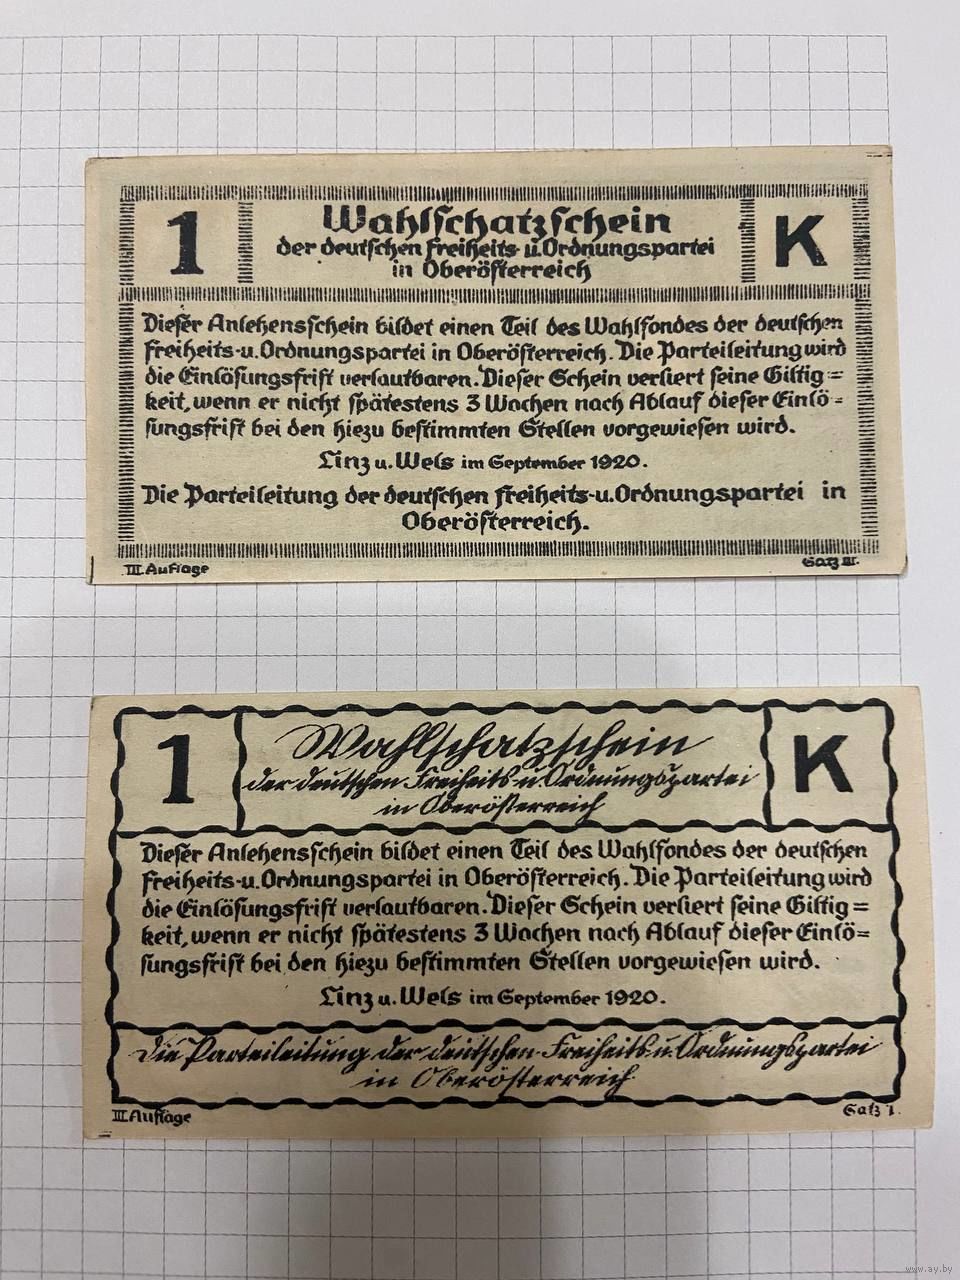 1
Wahlschatzschein
K
der deutschen Freiheits- u. Ordnungspartei
in Oberösterreich
Dieser Anlehensschein bildet einen Teil des Wahlfondes der deutschen
Freiheits- u. Ordnungspartei in Oberösterreich. Die Parteileitung wird
die Einlösungsfrist verlautbaren. Dieser Schein verliert seine Giltig=
keit, wenn er nicht spätestens 3 Wochen nach Ablauf dieser Einlö=
sungsfrist bei den hiezu bestimmten Stellen vorgewiesen wird.
Linz u. Wels im September 1920.
Die Parteileitung der deutschen Freiheits- u. Ordnungspartei in
Oberösterreich.
III. Auflage
Satz III.
1
Wahlschatzschein
K
der deutschen Freiheits- u. Ordnungspartei
in Oberösterreich
Dieser Anlehensschein bildet einen Teil des Wahlfondes der deutschen
Freiheits- u. Ordnungspartei in Oberösterreich. Die Parteileitung wird
die Einlösungsfrist verlautbaren. Dieser Schein verliert seine Giltig=
keit, wenn er nicht spätestens 3 Wochen nach Ablauf dieser Einlö=
sungsfrist bei den hiezu bestimmten Stellen vorgewiesen wird.
Linz u. Wels im September 1920.
Die Parteileitung der deutschen Freiheits- u. Ordnungspartei
in Oberösterreich
III Auflage
Satz 1.
www.ay.by